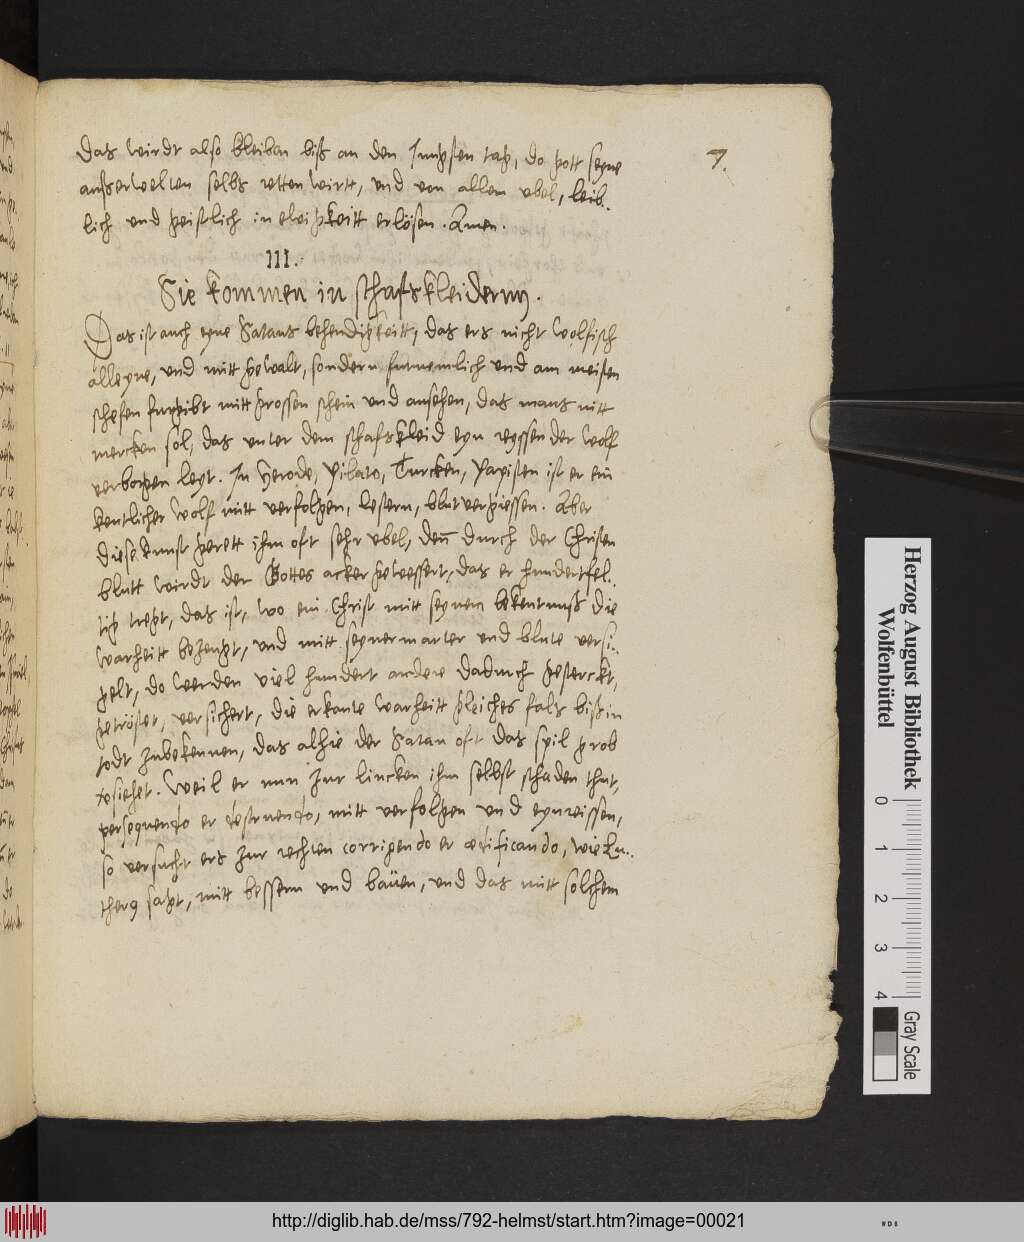 7.
Das wirdt also bleiben biß an den Jungsten tag, do gott seyne
außerwelten selbs retten wirtt, und von allem ubel, leib-
lich und geistlich in ewigkeitt erlösen. Amen.
III.
Sie kommen in schafskleidernn.
Das ist auch eyne Satans behendigkeitt, das ers nicht wolfisch
alleyne, und mitt gewalt, sondern furnemlich und am meisten
schefen furgibt mitt grossen schein und ansehen, das mans nitt
mercken sol, das unter dem schafskleid eyn reyssender wolf
verborgen leyt. In Herode, Pilato, Turcken, Papisten ist er ein
kentlicher wolf mitt verfolgen, lestern, blutvergiessen. Aber
diese kunst gerett ihm oft sehr ubel, den̄ durch der Christen
blutt wirdt der Gottes acker gewessert, das er hundertfel-
tig tregt, das ist, wo ein Christ mitt seynem bekentnuß die
warheitt bezeugt, und mitt seyner marter und blute versi-
gelt, do werden viel hundert andere dadurch gesterckt,
getröstet, versichert, die erkante warheitt gleiches fals biß in
todt zubekennen, das alhie der Satan oft das spil grob
versiehet. Weil er nun zur lincken ihm selbst schaden thut,
persequendo et destruendo, mitt verfolgen und eynreissen,
so versucht ers zur rechten corrigendo et ædificando, wie Lu-
therus sagt, mitt bessern und baüen, und das mitt solchem
Herzog August Bibliothek
Wolfenbüttel
0 1 2 3 4
Gray Scale
http://diglib.hab.de/mss/792-helmst/start.htm?image=00021